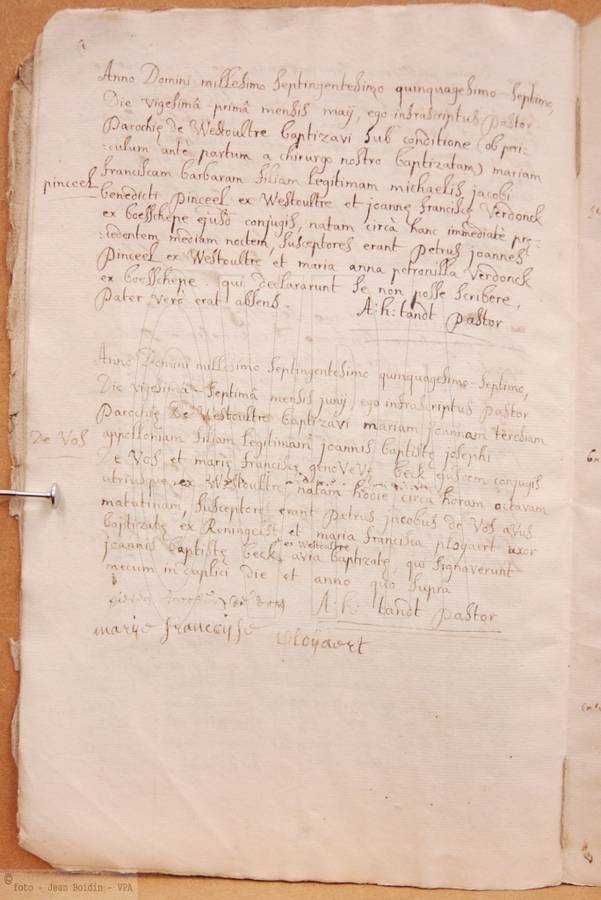 Anno Domini millesimo septingentesimo quinquagesimo-septimo,
Die vigesimâ-primâ mensis maij, ego infrascriptus Pastor
Parochię de Westoultre baptizavi sub conditione (ob peri-
:culum antè partum a chirurgo nostro baptizatam) mariam
franciscam barbaram filiam legitimam michaelis jacobi
pinceel
benedicti Pinceel ex Westoultre et joannę franciscę Verdonck
ex boesschepe ejusd conjugis, natam circà hanc immediatè prę-
:cedentem mediam noctem, susceptores erant Petrus joannes
Pinceel ex Westoultre et maria anna petronilla Verdonck
ex boesschepe. qui declararunt se non posse scribere,
Pater verò erat absens.
A:h: tandt pastor
Anno Domini millesimo septingentesimo quinquagesimo-septimo,
Die vigesimâ-septimâ mensis junij ego infrascriptus pastor
Parochię de Westoultre baptizavi mariam joannam teresiam
appolloniam filiam legitimam joannis baptistę josephi
De Vos
De Vos et marię franciscę beck ejusdem conjugis
utriusque ex Westoultre natam hodie circà horam octavam
matutinam, susceptores erant petrus jacobus de Vos avus
baptizatę ex Reningelst et maria francisca ployaert uxor
joannis baptistę beck ex Westoultre avia baptizatę, qui signaverunt
mecum in duplici die et anno quo supra
de vos
A:h: tandt pastor
marije francoijse ployaert
© foto - Jean Boidin - VPA